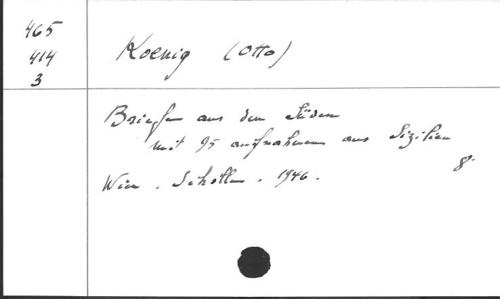 465
414
3
Koenig (Otto)
Briefe aus dem Süden
mit 95 aufnahmen aus Sizilien
8°
Wien. Scholle. 1946.